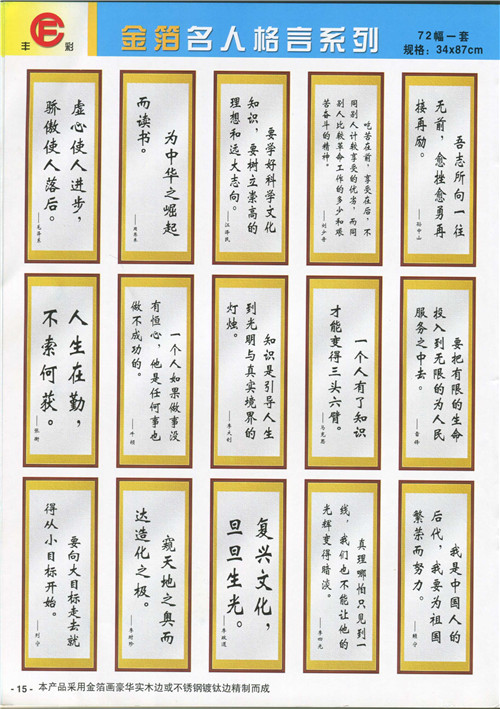 丰 彩
金箔名人格言系列
72幅一套
规格：34x87cm
虚心使人进步，
骄傲使人落后。
——毛泽东
为中华之崛起
而读书。
——周恩来
要学好科学文化
知识，要树立崇高的
理想和远大志向。
——江泽民
吃苦在前，享受在后，不
同别人计较享受的优劣，而同
别人比较革命工作的多少和艰
苦奋斗的精神。
——刘少奇
吾志所向一往
无前，愈挫愈勇再
接再励。
——孙中山
人生在勤，
不索何获。
——张衡
一个人如果做事没
有恒心，他是任何事也
做不成功的。
——牛顿
知识是引导人生
到光明与真实境界的
灯烛。
——李大钊
一个人有了知识
才能变得三头六臂。
——马克思
要把有限的生命
投入到无限的为人民
服务之中去。
——雷锋
要向大目标走去就
得从小目标开始。
——列宁
窥天地之奥而
达造化之极。
——李时珍
复兴文化，
旦旦生光。
真理哪怕只见到一
线，我们也不能让他的
光辉变得暗淡。
——李四光
我是中国人的
后代，我要为祖国
繁荣而努力。
——赖宁
- 15 - 本产品采用金箔画豪华实木边或不锈钢镀钛边精制而成